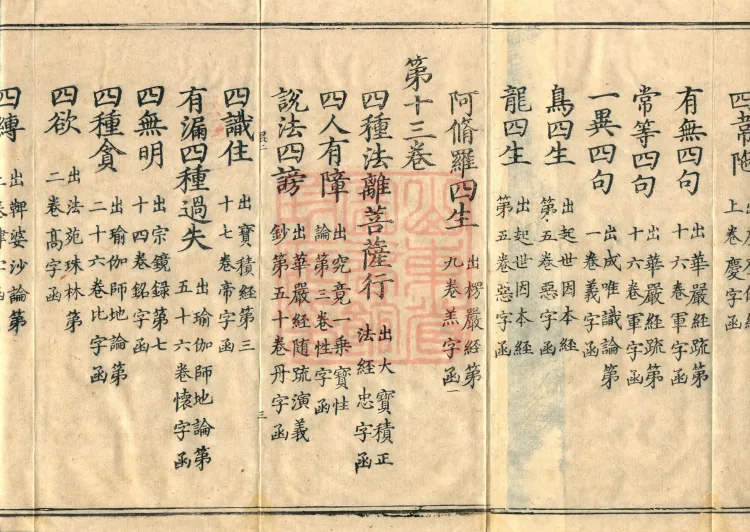 有無四句 出華嚴經疏第十六卷軍字函
常等四句 出華嚴經疏第十六卷軍字函
一異四句 出成唯識論第一卷義字函
鳥四生 出起世因本經第五卷惡字函
龍四生 出起世因本經第五卷惡字函
阿脩羅四生 出楞嚴經第九卷羔字函
第十三卷
四種法離菩薩行 出大寶積正法經忠字函
四人有障 出究竟一乘寶性論第三卷性字函
說法四謗 出華嚴經隨疏演義鈔第五十卷丹字函
三
四識住 出寶積經第三十七卷帝字函
有漏四種過失 出瑜伽師地論第五十六卷懷字函
四無明 出宗鏡録第七十四卷銘字函
四種貪 出瑜伽師地論第二十六卷比字函
四欲 出法苑珠林第二卷高字函
四縛 出鞞婆沙論第